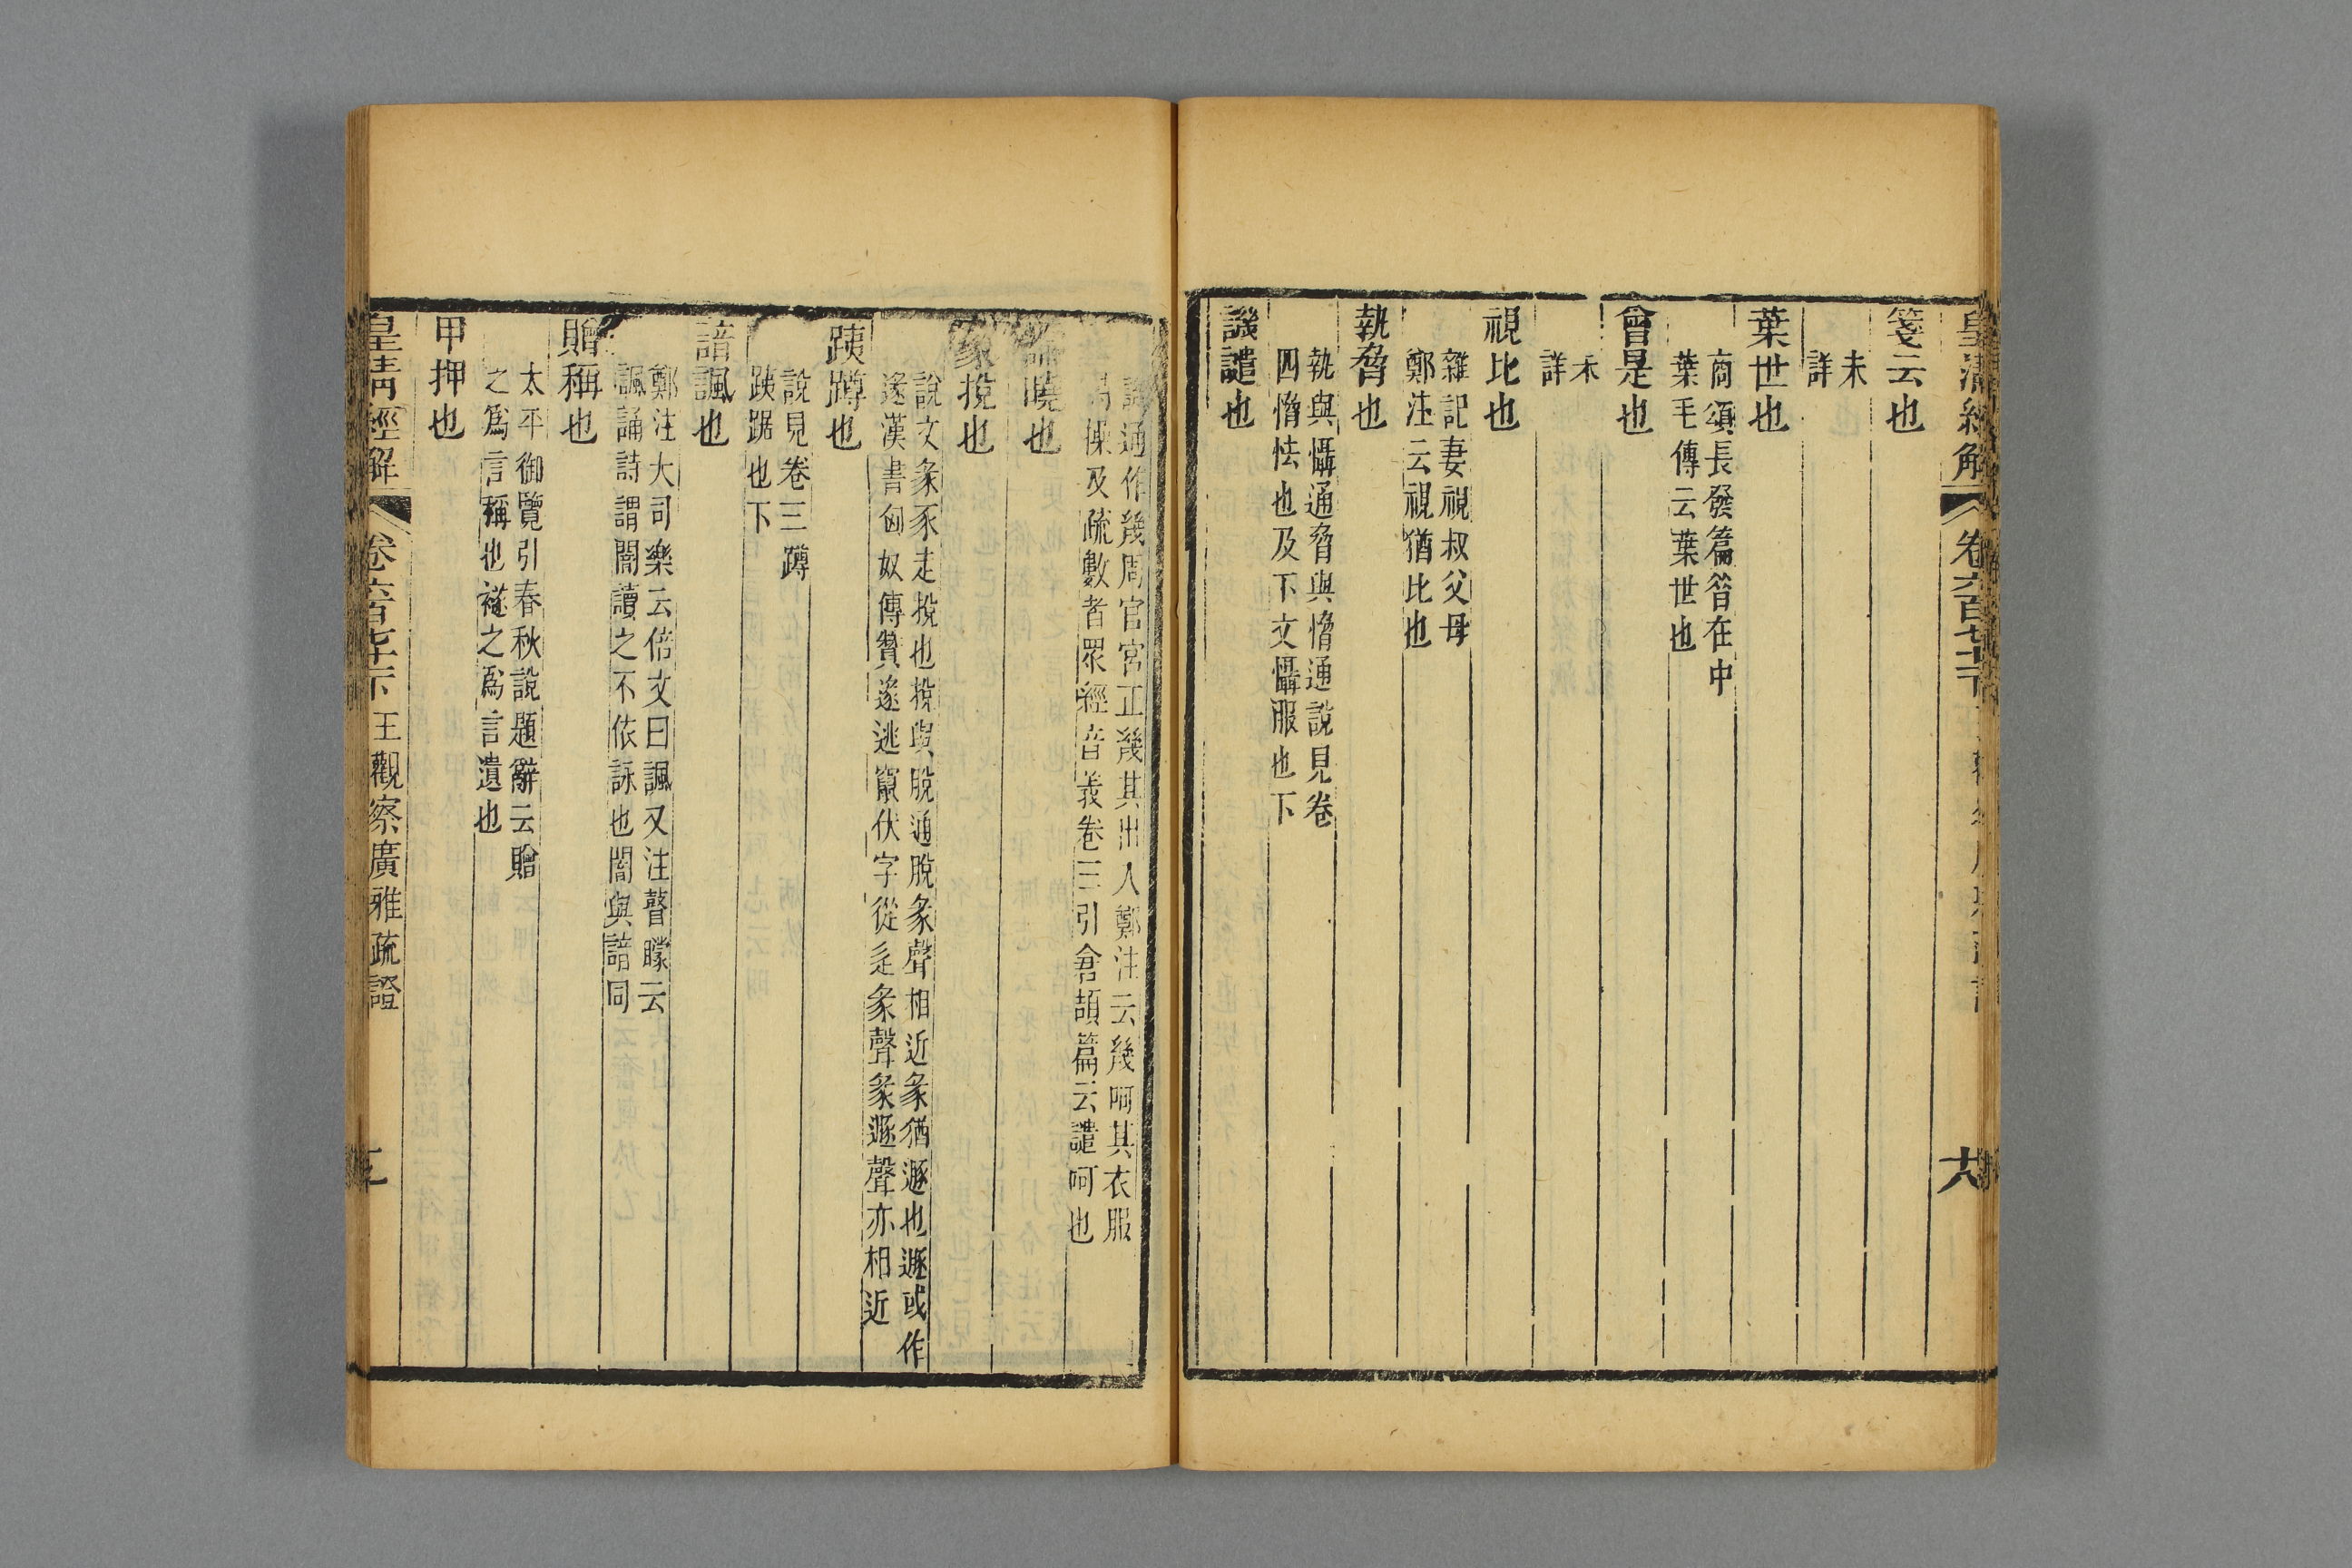 箋云也
未
詳
葉世也
商頌長發篇昝在中
葉毛傳云葉世也
曾是也
未
詳
視比也
雜記妻視叔父母
鄭注云視猶比也
執脅也
執與懾通脅與愶通說見卷
四愶怯也及下文懾服也下
譏譴也
譏通作幾周官宮正幾其出入鄭注云幾呵其衣服
持操及疏數者眾經音義卷三引倉頡篇云譴呵也
曉也
彖挩也
說文彖豕走挩也挩與脫通脫彖聲相近彖猶遯也遯或作
遂漢書匈奴傳贊遂逃竄伏字從辵彖聲彖遯聲亦相近
跠蹲也
說見卷三蹲
跠踞也下
諳諷也
鄭注大司樂云倍文曰諷又注瞽矇云
諷誦詩謂闇讀之不依詠也闇與諳同
贈稱也
太平御覽引春秋說題辭云贈
之爲言稱也襚之爲言遺也
甲押也
皇清經解
卷六百七十下
王觀察廣雅疏證